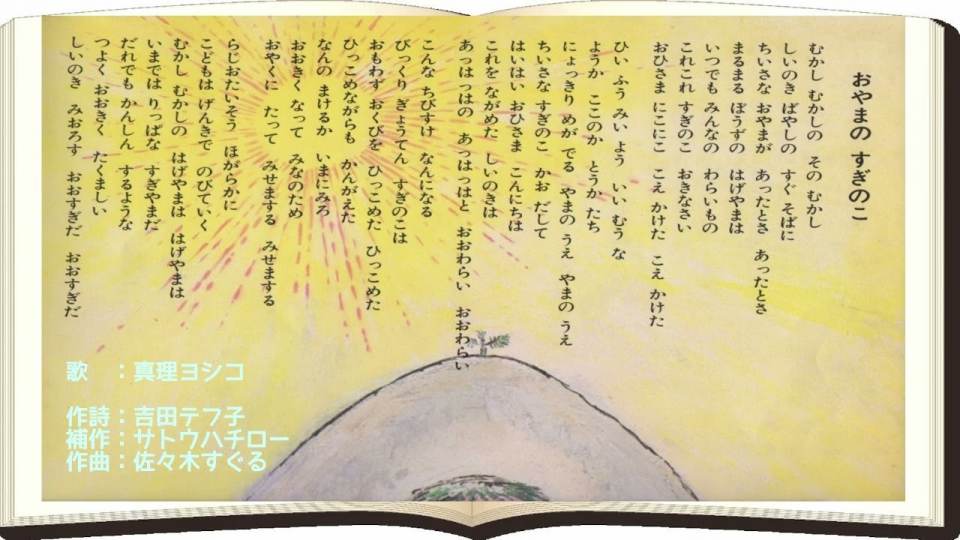 おやまの すぎのこ
むかし むかしの その むかし
しいのき ばやしの すぐ そばに
ちいさな おやまが あったとさ あったとさ
まるまる ぼうずの はげやまは
いつでも みんなの わらいもの
これこれ すぎのこ おきなさい
おひさま にこにこ こえ かけた こえ かけた
ひい ふう みい よう いい むう な
ようか ここのか とうか たち
にょっきり めが でる やまの うえ やまの うえ
ちいさな すぎのこ かお だして
はいはい おひさま こんにちは
これを ながめた しいのきは
あっはっはの あっはっはと おおわらい おおわらい
こんな ちびすけ なんになる
びっくり ぎょうてん すぎのこは
おもわず おくびを ひっこめた ひっこめた
ひっこめながらも かんがえた
なんの まけるか いまにみろ
おおきく なって みなのため
おやくに たって みせまする みせまする
らじおたいそう ほがらかに
こどもは げんきで のびていく
むかし むかしの はげやまは はげやまは
いまでは りっぱな すぎやまだ
だれでも かんしん するような
つよく おおきく たくましい
しいのき みおろす おおすぎだ おおすぎだ
歌 ：真理ヨシコ
作詩：吉田テフ子
補作：サトウハチロー
作曲：佐々木すぐる